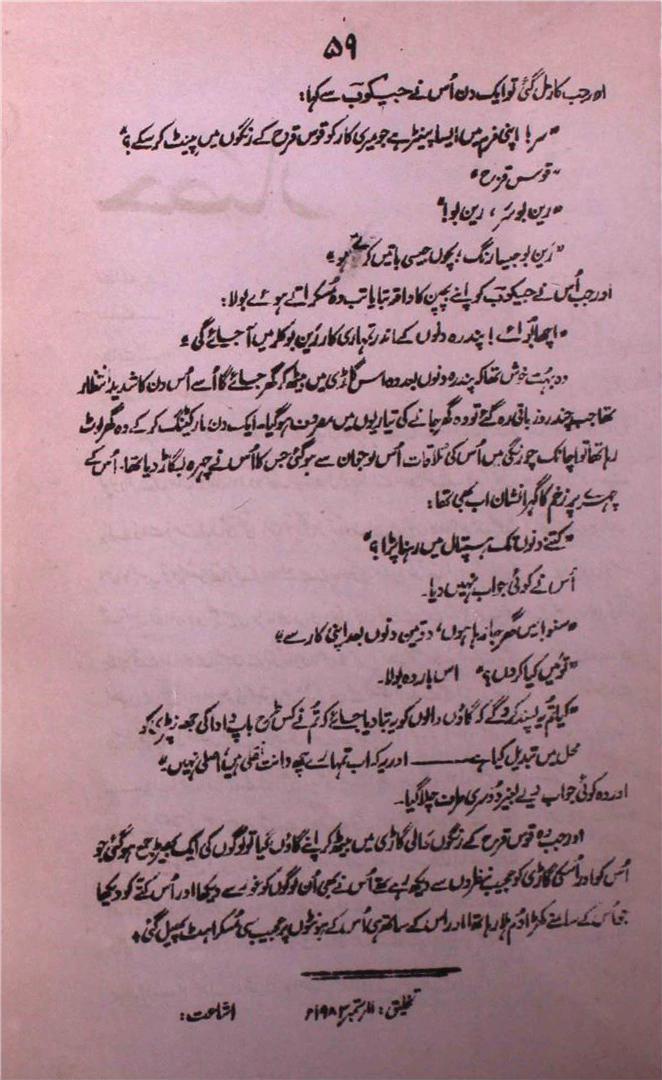 ۵۹
اور جب کار مل گئی تو ایک دن اُس نے جیکوب سے کہا:
"سر! اپنی فرم میں ایسا پینٹر ہے جو میری کار کو قوس قزح کے رنگوں میں پینٹ کر سکے؟"
"قوس قزح"
"رین بو سَر، رین بو!"
"رَین بو جیسا رنگ؛ بچوں جیسی باتیں کرتے ہو"
اور جب اُس نے جیکوب کو اپنے بچپن کا واقعہ بتایا تب وہ مُسکراتے ہوئے بولا:
"اچھا بوائے! پندرہ دنوں کے اندر تمہاری کار رَین بو کلر میں آ جائے گی"
وہ بہُت خوش تھا کہ پندرہ دنوں بعد وہ اس گاڑی میں بیٹھ کر گھر جائے گا اُسے اُس دن کا شدید انتظار
تھا جب چند روز باقی رہ گئے تو وہ گھر جانے کی تیاریوں میں مصروف ہو گیا۔ ایک دن مارکیٹنگ کر کے وہ گھر لوٹ
رہا تھا تو اچانک چورنگی میں اُس کی ملاقات اُس نوجوان سے ہو گئی جس کا اُس نے چہرہ بگاڑ دیا تھا۔ اُس کے
چہرے پر زخم کا گہرا نشان اب بھی تھا:
"کتنے دنوں تک ہسپتال میں رہنا پڑا؟"
اُس نے کوئی جواب نہیں دیا۔
"سنو! میں گھر جا رہا ہوں، دو تین دنوں بعد اپنی کار سے"
"تو میں کیا کروں؟" اس بار وہ بولا۔
"کیا تم یہ پسند کرو گے کہ گاؤں والوں کو یہ بتا دیا جائے کہ تُم نے کس طرح باپ دادا کی جھونپڑی کو
محل میں تبدیل کیا ہے ــــــ اور یہ کہ اب تمہارے کچھ دانت نقلی ہیں، اصلی نہیں"
اور وہ کوئی جواب دیے بغیر دُوسری طرف چلا گیا۔
اور جب وہ قوس قزح کے رنگوں والی گاڑی میں بیٹھ کر اپنے گاؤں گیا تو لوگوں کی ایک بھیڑ جمع ہو گئی جو
اُس کو اور اُسکی گاڑی کو عجیب نظروں سے دیکھ رہے تھے اُس نے بھی اُن لوگوں کو غور سے دیکھا اور اُس کتّے کو دیکھا
جو اُس کے سامنے کھڑا دُم ہلا رہا تھا اور اس کے ساتھ ہی اُس کے ہونٹوں پر عجیب سی مُسکراہٹ پھیل گئی۔
تخلیق: ستمبر ۱۹۸۲ء اشاعت: